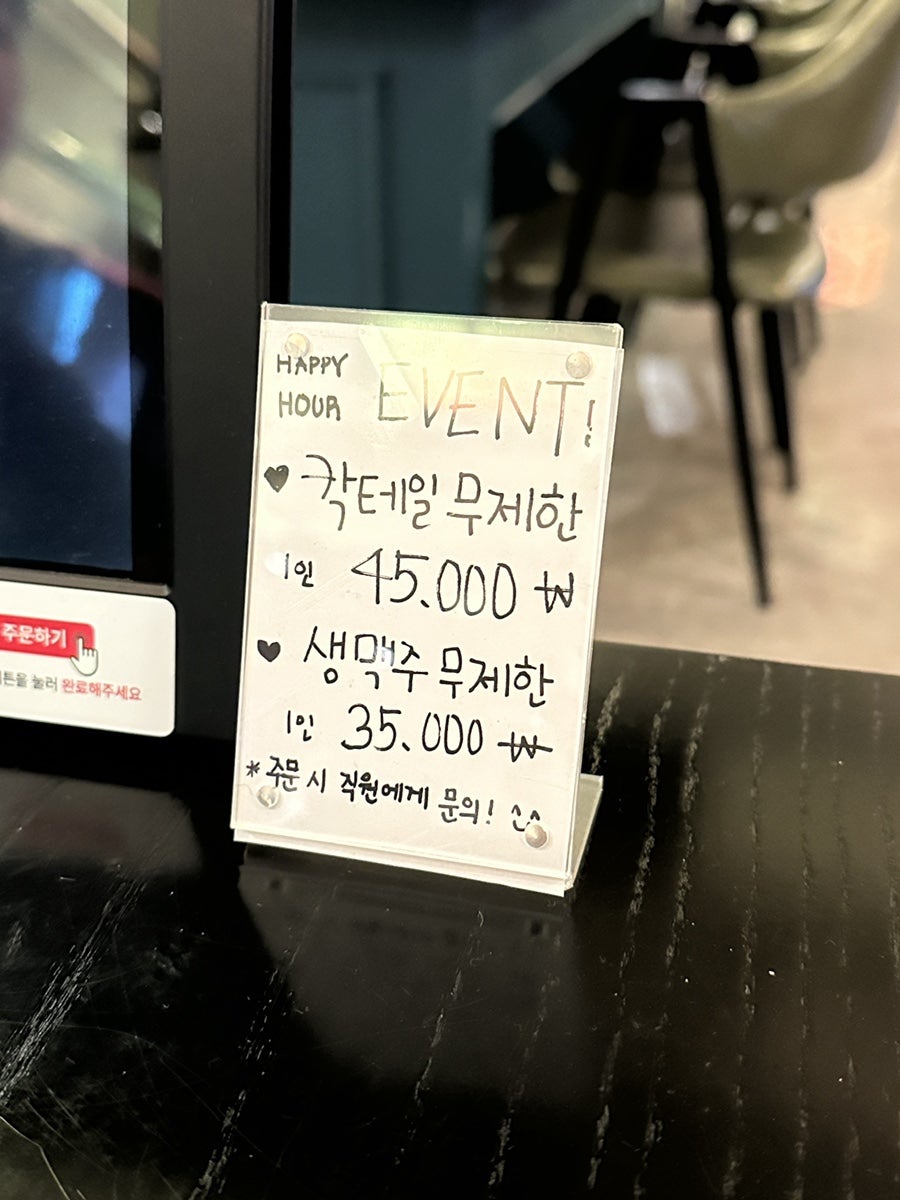 HAPPY HOUR EVENT!
♥ 칵테일 무제한
1인 45.000 ₩
♥ 생맥주 무제한
1인 35.000 ₩
* 주문 시 직원에게 문의! ^^
주문하기
눌러 완료해주세요